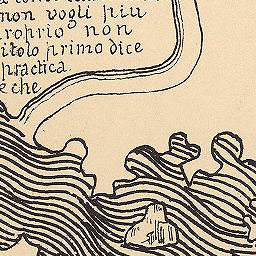 non vogli piu
roprio non
itolo primo dice
practica
e che